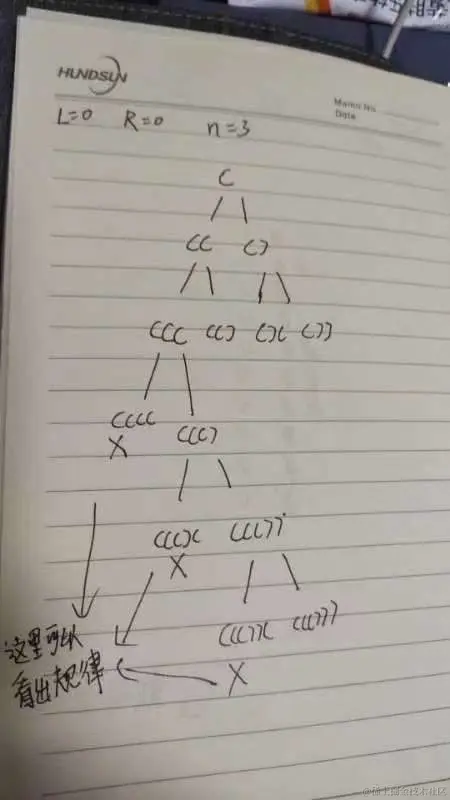 HUNDSUN
Memo No.
Date
L=0 R=0 n=3
(
(( ()
((( (() ()( ())
(((( ((()
X
((()( ((())
X
((())( ((()))
X
这里可以
看出规律
@稀土掘金技术社区